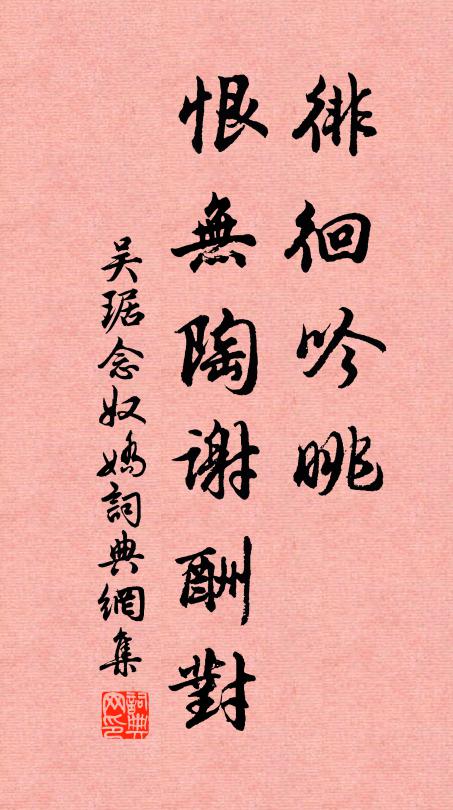 徘徊吟眺
恨無陶謝酬對
吴琚念奴嬌詞典網集
詞典网印